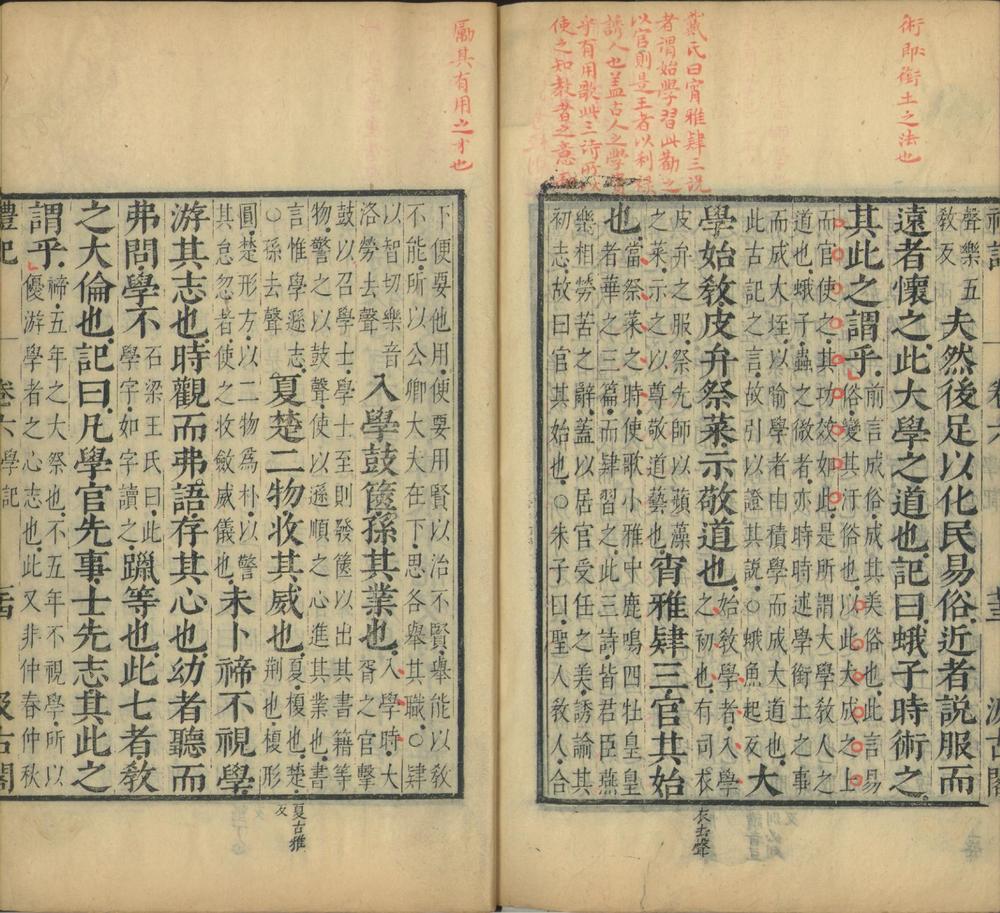 術即銜土之法也
戴氏曰宵雅肄三說
者謂始學習此勸之
以官則是王者以利祿
誘人也盖古人之學
乎有用歌此三詩所以
使之知教者之意
聲樂五
敎反
夫然後足以化民易俗近者說服而
遠者懷之此大學之道也記曰蛾子時術之
其此之謂乎
前言成俗成其美俗也此言易
俗變其汙俗也以此大成之士
而官使之其功效如此是所謂大學敎人之
道也蛾子蟲之微者亦時時述學銜土之事
而成大垤以喻學者由積學而成大道也
此古記之言故引以證其說○蛾魚起反
大
學始敎皮弁祭菜示敬道也
始敎學者入學
之初也有司衣
皮弁之服祭先師以蘋藻
之菜示之以尊敬道藝也
宵雅肄三官其始
也
當祭菜之時使歌小雅中鹿鳴四牡皇皇
者華之三篇而肄習之此三詩皆君臣燕
樂相勞苦之辭蓋以居官受任之美誘諭其
初志故曰官其始也○朱子曰聖人敎人合
衣去聲
勵其有用之才也
下便要他用便要用賢以治不賢舉能以敎
不能所以公卿大夫在下思各舉其職○肄
以智切樂音
洛勞去聲
入學鼓篋孫其業也
入學時大
胥之官擊
鼓以召學士學士至則發篋以出其書籍等
物警之以鼓聲使以遜順之心進其業也書
言惟學遜志
○孫去聲
夏楚二物收其威也
夏榎也楚
荆也榎形
圓楚形方以二物爲朴以警
其怠忽者使之收斂威儀也
未卜禘不視學
游其志也時觀而弗語存其心也幼者聽而
弗問學不
石梁王氏曰此
學字如字讀之
躐等也此七者敎
之大倫也記曰凡學官先事士先志其此之
謂乎
禘五年之大祭也不五年不視學所以
優游學者之心志也此又非仲春仲秋
禮記 卷六 學記 汲古閣
夏古雅
反